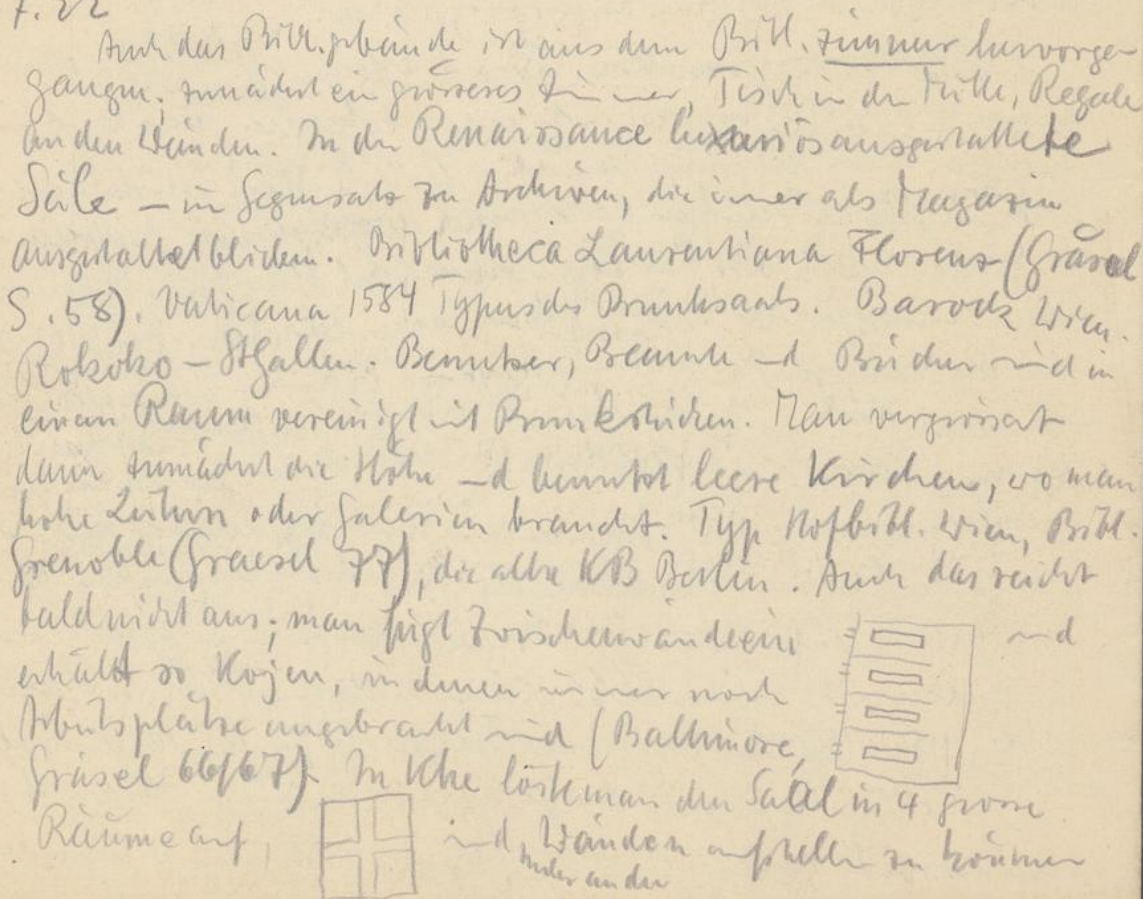 7.22
Auch das Bibl.gebäude ist aus dem Bibl.zimmer hervorge-
gangen, zunächst ein grösseres Zimmer, Tisch in der Mitte, Regale
an den Wänden. In der Renaissance luxuriös ausgestattete
Säle – im Gegensatz zu Archiven, die immer als Magazin
ausgestaltet blieben. Bibliotheca Laurentiana Florenz (Gräsel
S. 58). Vaticana 1584 Typus des Prunksaals. Barock Wien.
Rokoko – St Gallen. Benutzer, Beamte und Bücher sind in
einem Raum vereinigt mit Prunkstücken. Man vergrössert
dann zunächst die Höhe und benutzt leere Kirchen, wo man
hohe Leitern oder Galerien braucht. Typ Hofbibl. Wien, Bibl.
Grenoble (Graesel 77), die alte KB Berlin. Auch das reicht
bald nicht aus; man fügt Zwischenwände ein und
erhält so Kojen, in denen immer noch
Arbeitsplätze angebracht sind (Balthimore,
Gräsel 66/67). In Khe löste man den Saal in 4 grosse
Räume auf, Wänden aufstellen zu können
an den